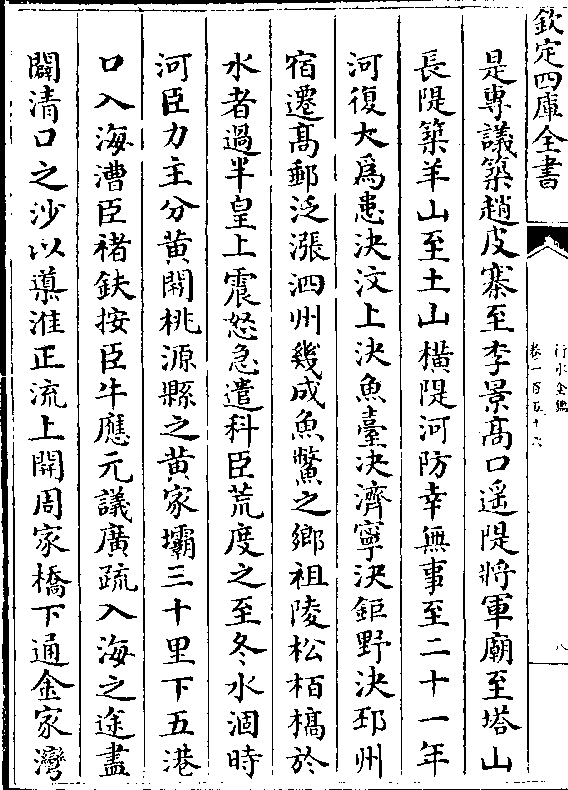 欽定四庫全書
行水金鑑
卷一百五十六
八
是專議築趙皮寨至李景髙口遥隄將軍廟至塔山
長隄築羊山至土山橫隄河防幸無事至二十一年
河復大為患決汶上決魚臺決濟寧決鉅野決邳州
宿遷髙郵泛漲泗州幾成魚鱉之鄉祖陵松栢槁於
水者過半皇上震怒急遣科臣荒度之至冬水涸時
河臣力主分黄開桃源縣之黄家壩三十里下五港
口入海漕臣褚鈇按臣牛應元議廣疏入海之途盡
闢清口之沙以導淮正流上開周家橋下通金家灣